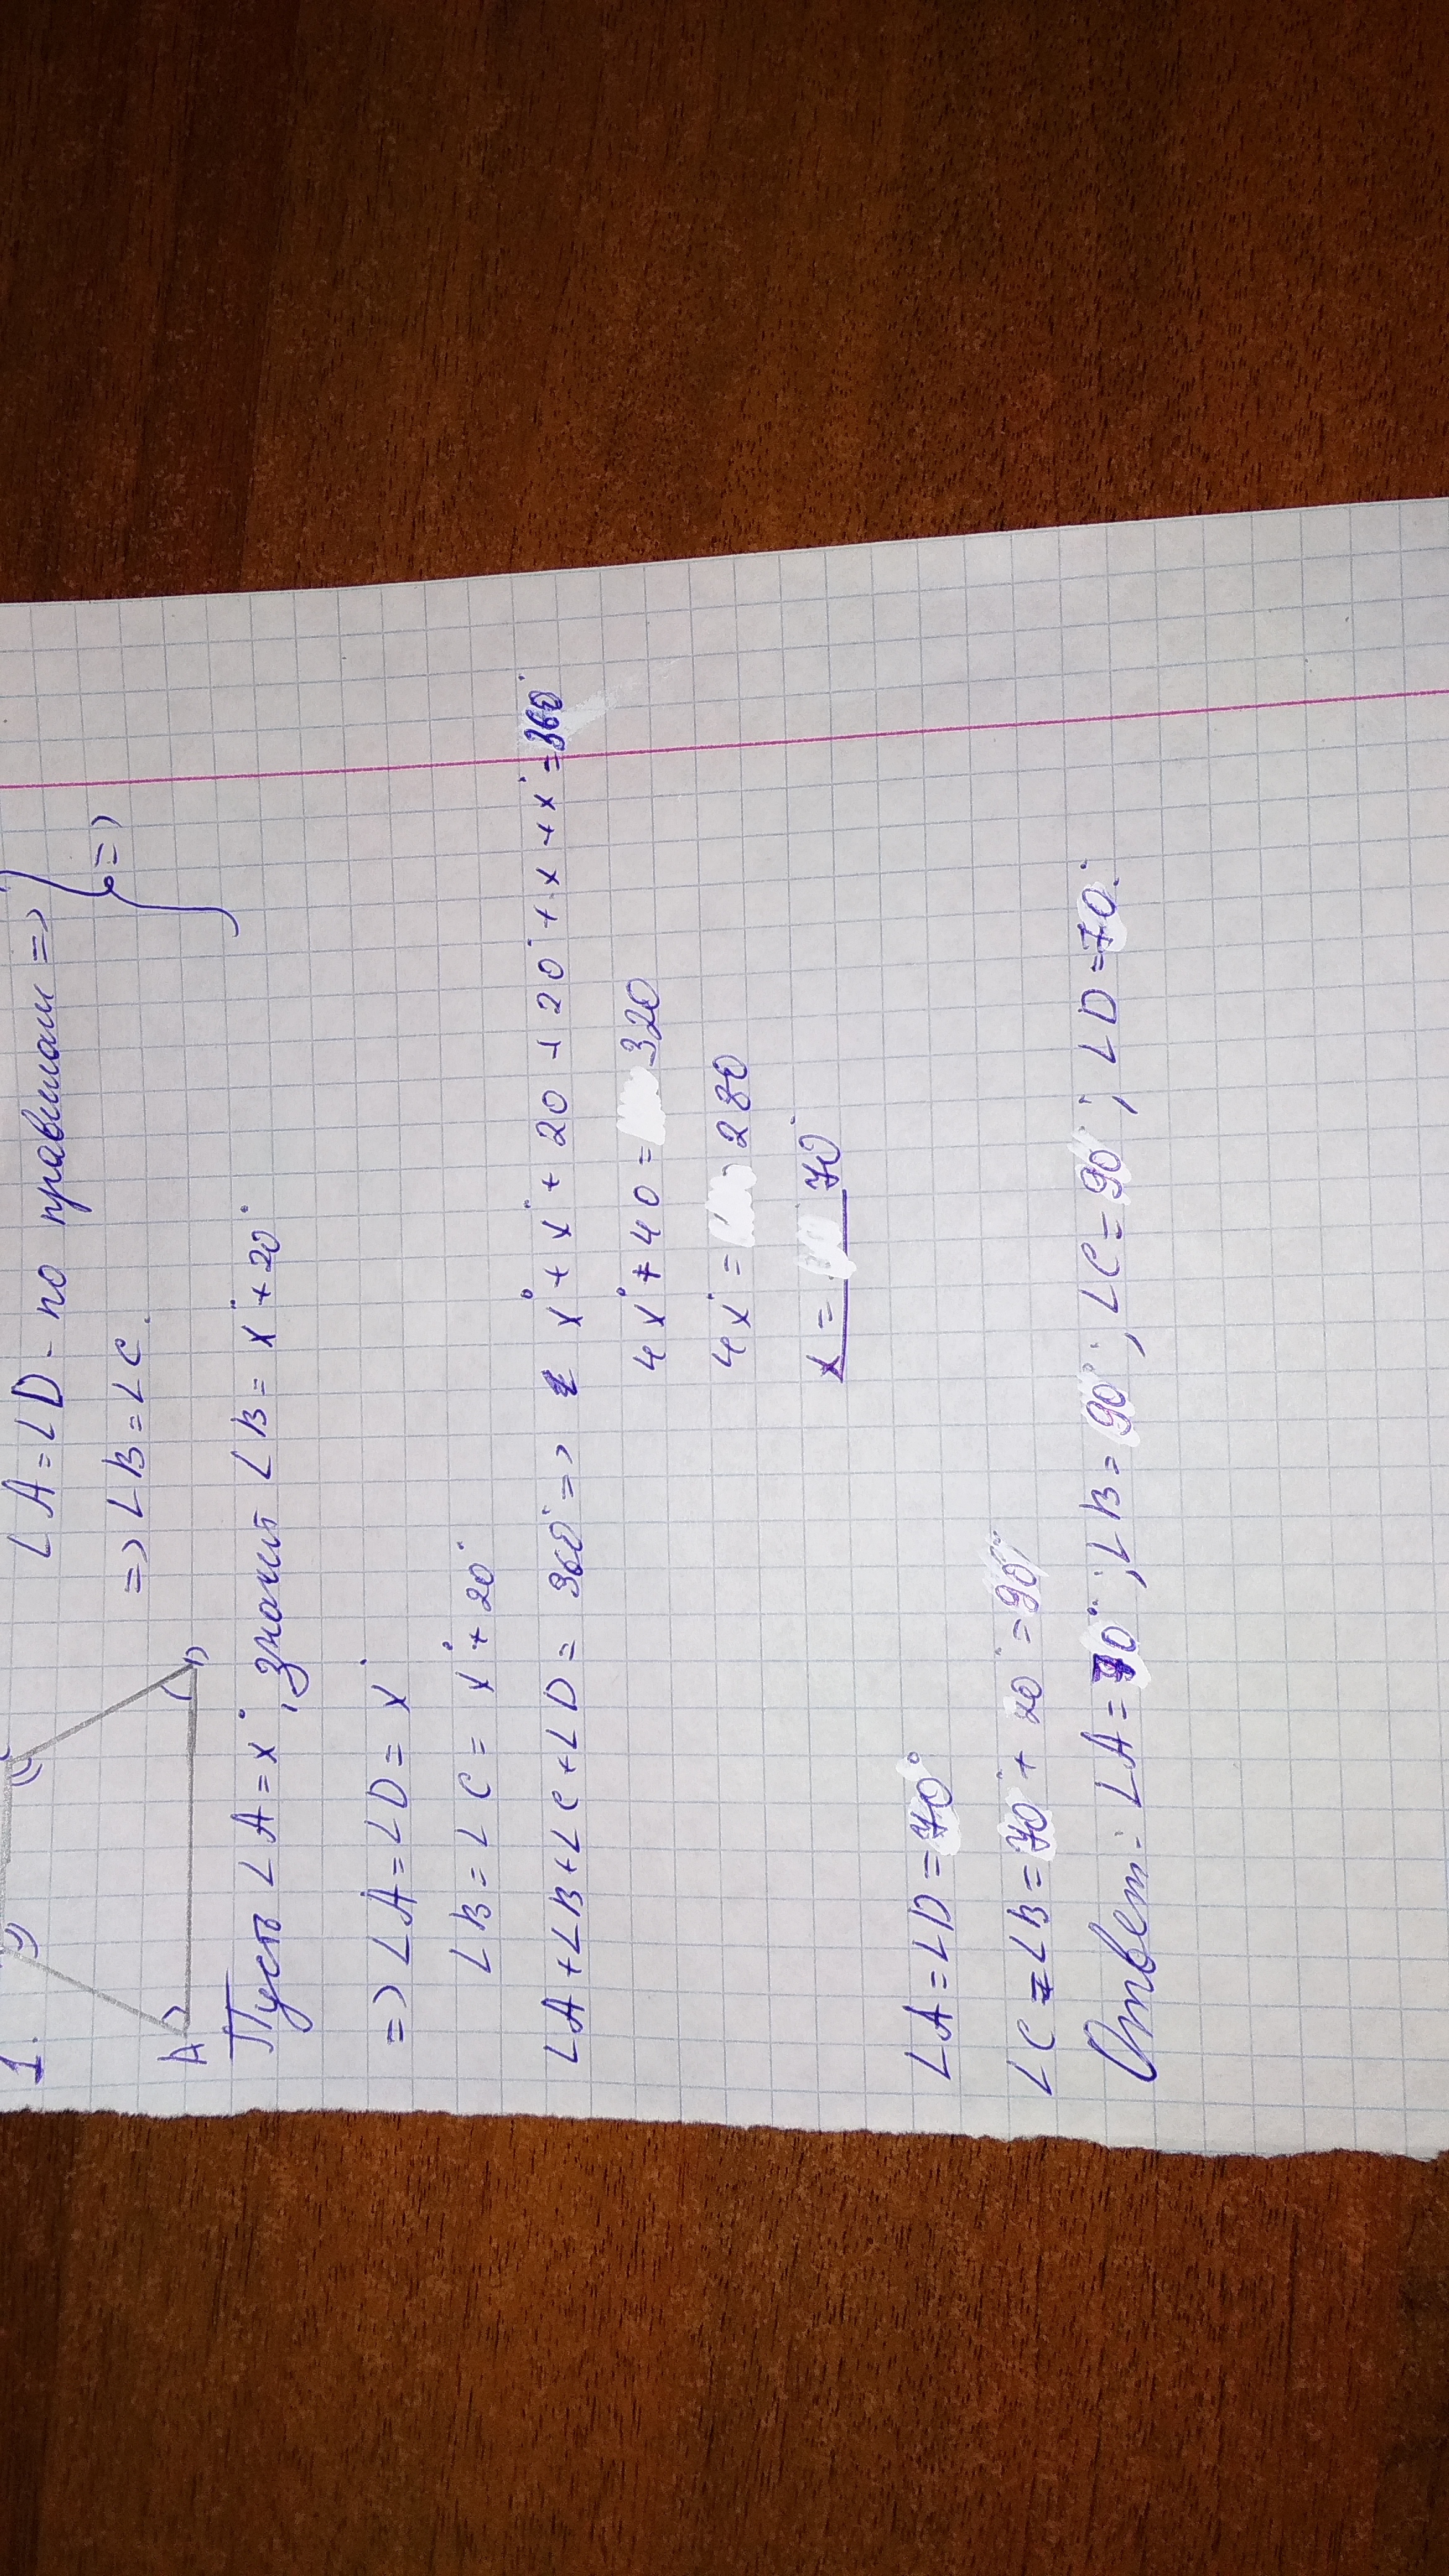 1.
∠A=∠D - по правилам =>
=> ∠B=∠C. } =>
A D
Пусть ∠A=x°, значит ∠B= x°+20°
=> ∠A=∠D= x°
∠B=∠C= x°+20°
∠A+∠B+∠C+∠D= 360° => x°+x°+20+20°+x+x°=360°
4x°+40= 320
4x°= 280
x= 70°
∠A=∠D=70°
∠C=∠B=70°+20°=90°
Ответ: ∠A=70°; ∠B=90°; ∠C=90°; ∠D=70°.